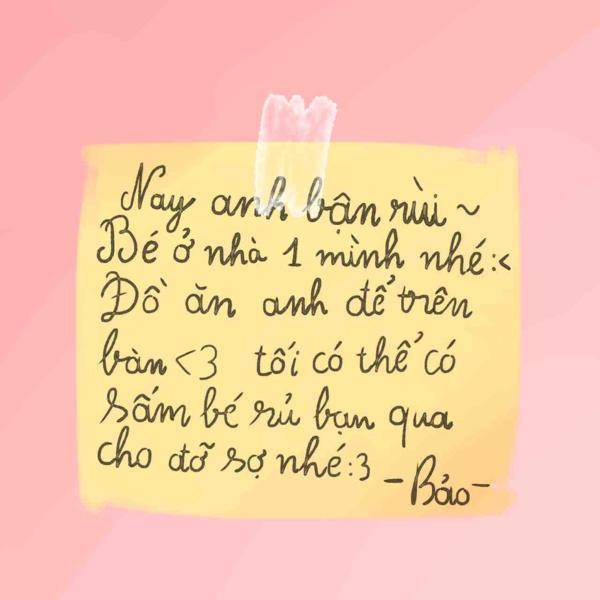 Nay anh bận rùi ~
Bé ở nhà 1 mình nhé:<
Đồ ăn anh để trên
bàn <3 tối có thể có
sấm bé rủ bạn qua
cho đỡ sợ nhé:3
-Bảo-